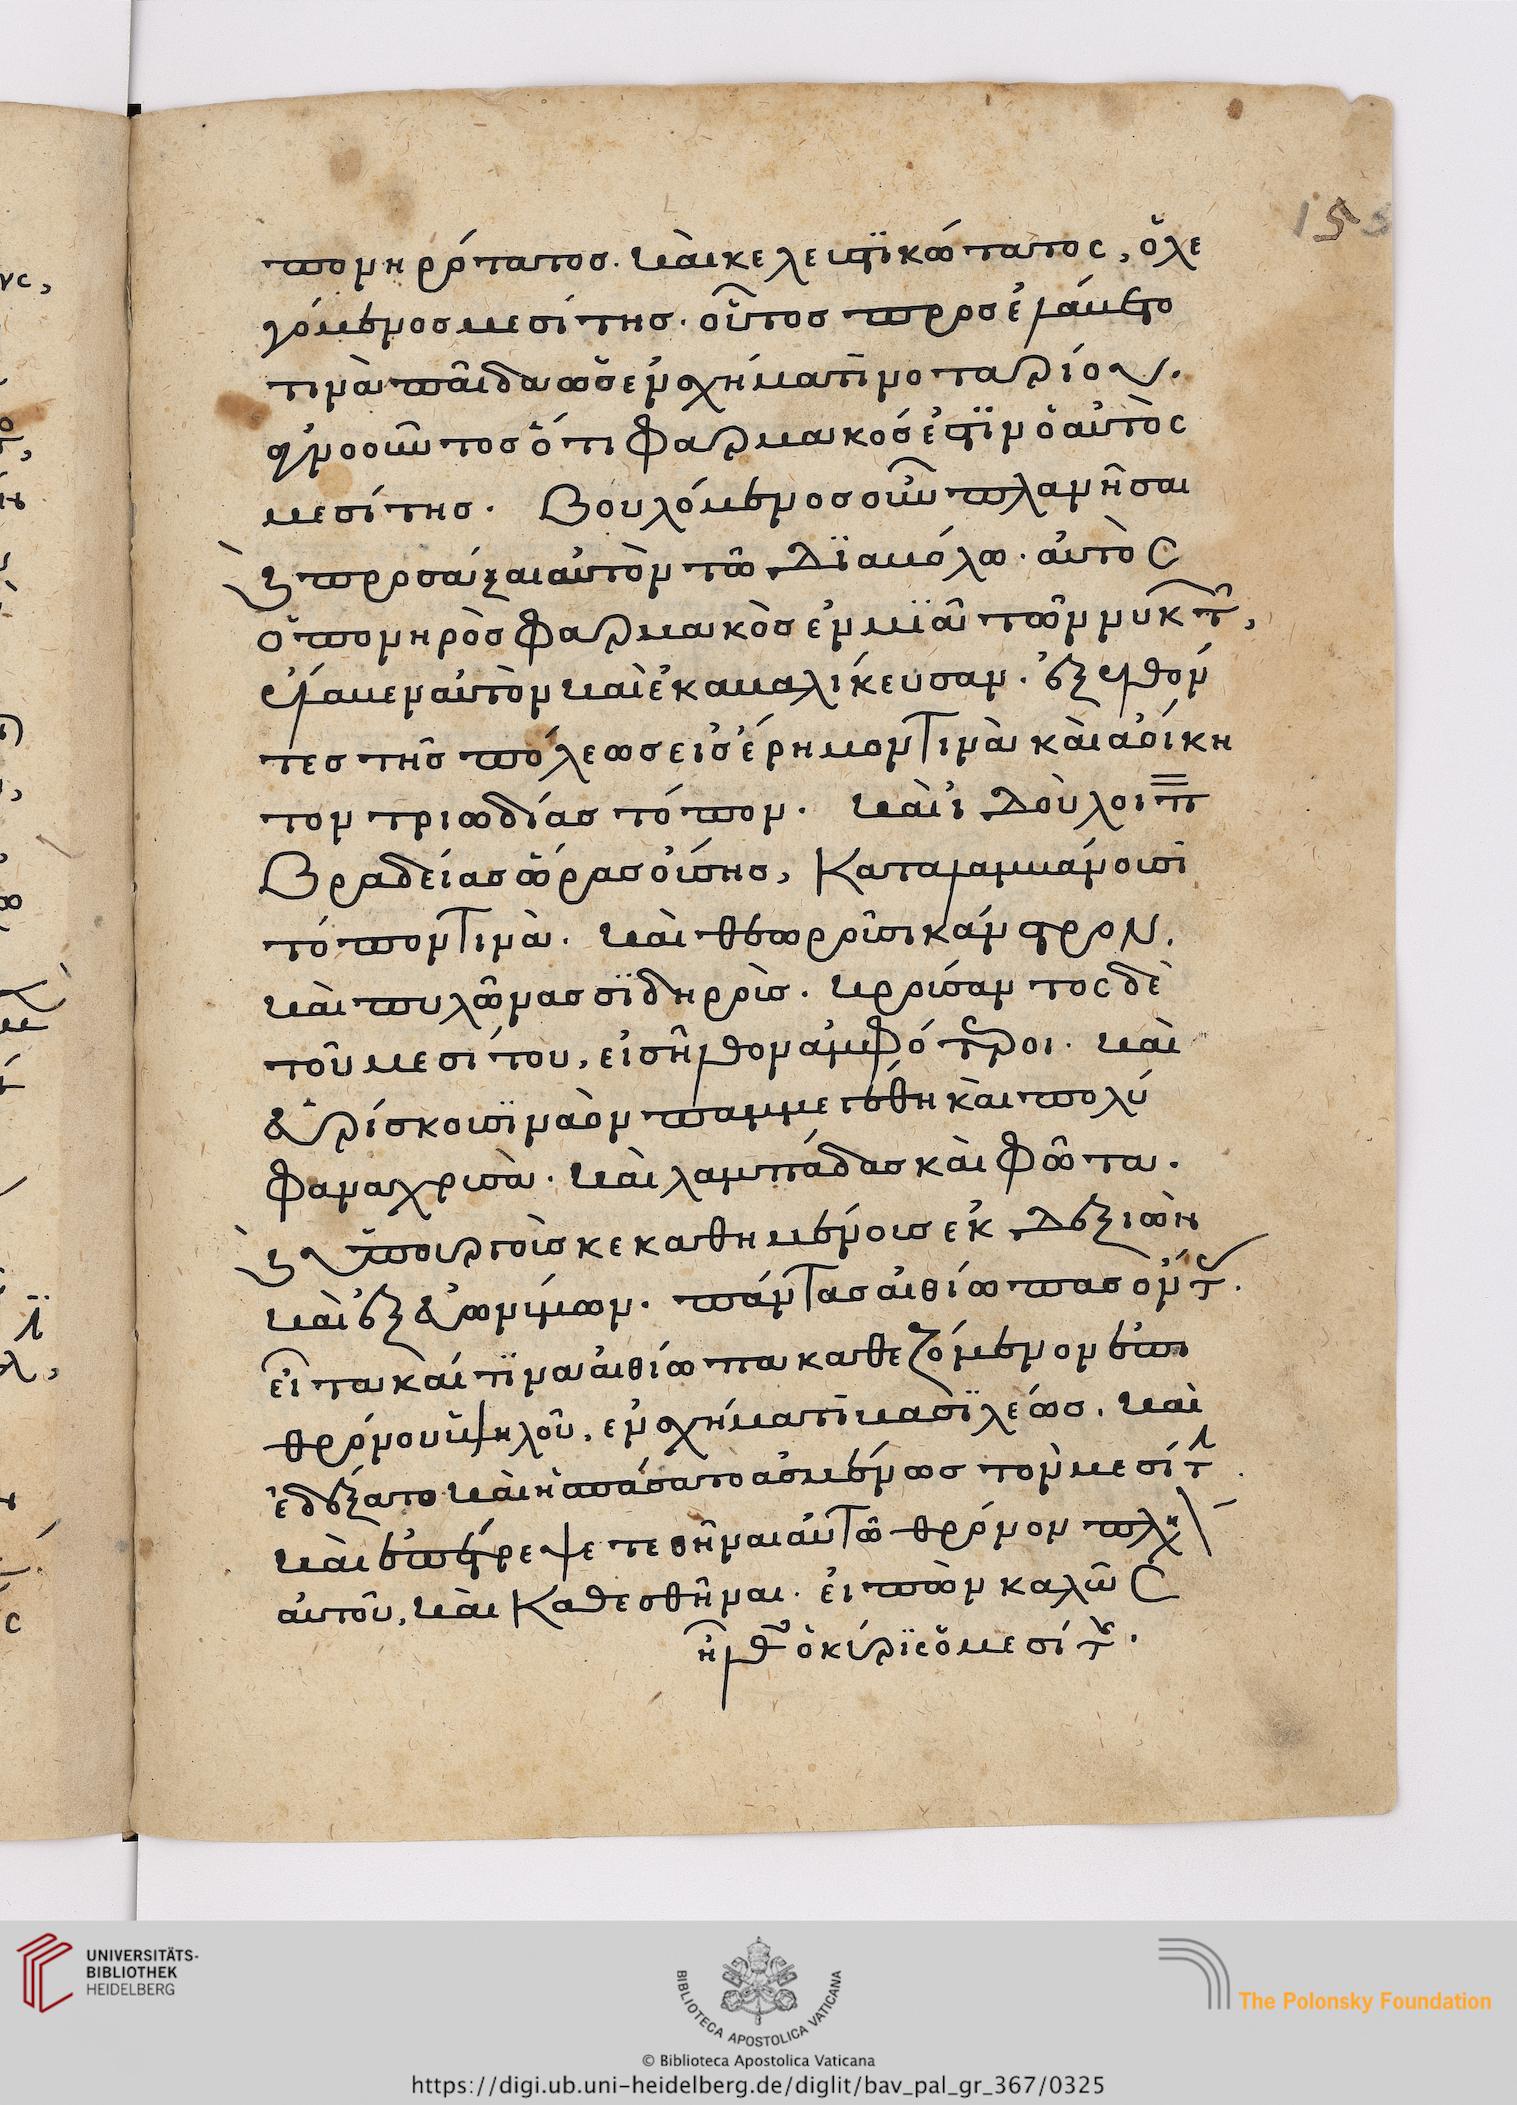 πονηρότατος. καὶ κελεστϊκώτατος, ὁ λε
γόμενος μεσίτης. οὗτος προσελάβετο
τινὰ παῖδα ὡς ἐν σχήματι νοταρίου.
ἀγνοοῦντος ὅτι φαρμακός ἐστϊν ὁ αὐτὸς
μεσίτης. Βουλόμενος οὖν πλανῆσαι
καὶ προσάξαι αὐτὸν τῶ Δϊαβόλω. αὐτὸς
ὁ πονηρὸς φαρμακὸς ἐν μϊᾶ τῶν νυκτῶν,
ἔλαβεν αὐτὸν καὶ ἐκαβαλίκευσαν. ἐξελθόν
τες τῆς πόλεως εἰς ἔρημον τινὰ καὶ ἀοίκη
τον τριωδίας τόπον. καὶ ἰδοὺ λοιπ
Βραδείας ὥρας οὔσης, καταλαμβάνουσι
τόπον τινὰ. καὶ θεωροῦσι κάστρον.
καὶ πυλῶνας σϊδηροὺς. κρούσαντος δὲ
τοῦ μεσίτου, εἰσῆλθον ἀμφότεροι. καὶ
εὑρίσκουσϊ ναὸν παμμεγέθη καὶ πολύ
φανα χρυσὰ. καὶ λαμπάδας καὶ φῶτα.
καὶ ὑπουργοὺς κεκαθημένους ἐκ Δεξιῶν
καὶ ἐξ εὐωνύμων. πάντας αἰθίωπας ὄντας.
εἶτα καί τϊνα αἰθίωπα καθεζόμενον ἐπι
θρόνου ὑψηλοῦ, ἐν σχήματι βασϊλέως. καὶ
ἐδέξατο καὶ ἠσπάσατο ἀσμένως τὸν μεσίτην.
καὶ ἐπέτρεψε τεθῆναι αὐτῶ θρόνον πλησίον
αὐτοῦ, καὶ καθεσθῆναι. εἰπὼν καλῶς
ἦλθες ὁ κύρϊε ὁ μεσίτης.
UNIVERSITÄTS-
BIBLIOTHEK
HEIDELBERG
BIBLIOTECA APOSTOLICA VATICANA
The Polonsky Foundation
© Biblioteca Apostolica Vaticana
https://digi.ub.uni-heidelberg.de/diglit/bav_pal_gr_367/0325